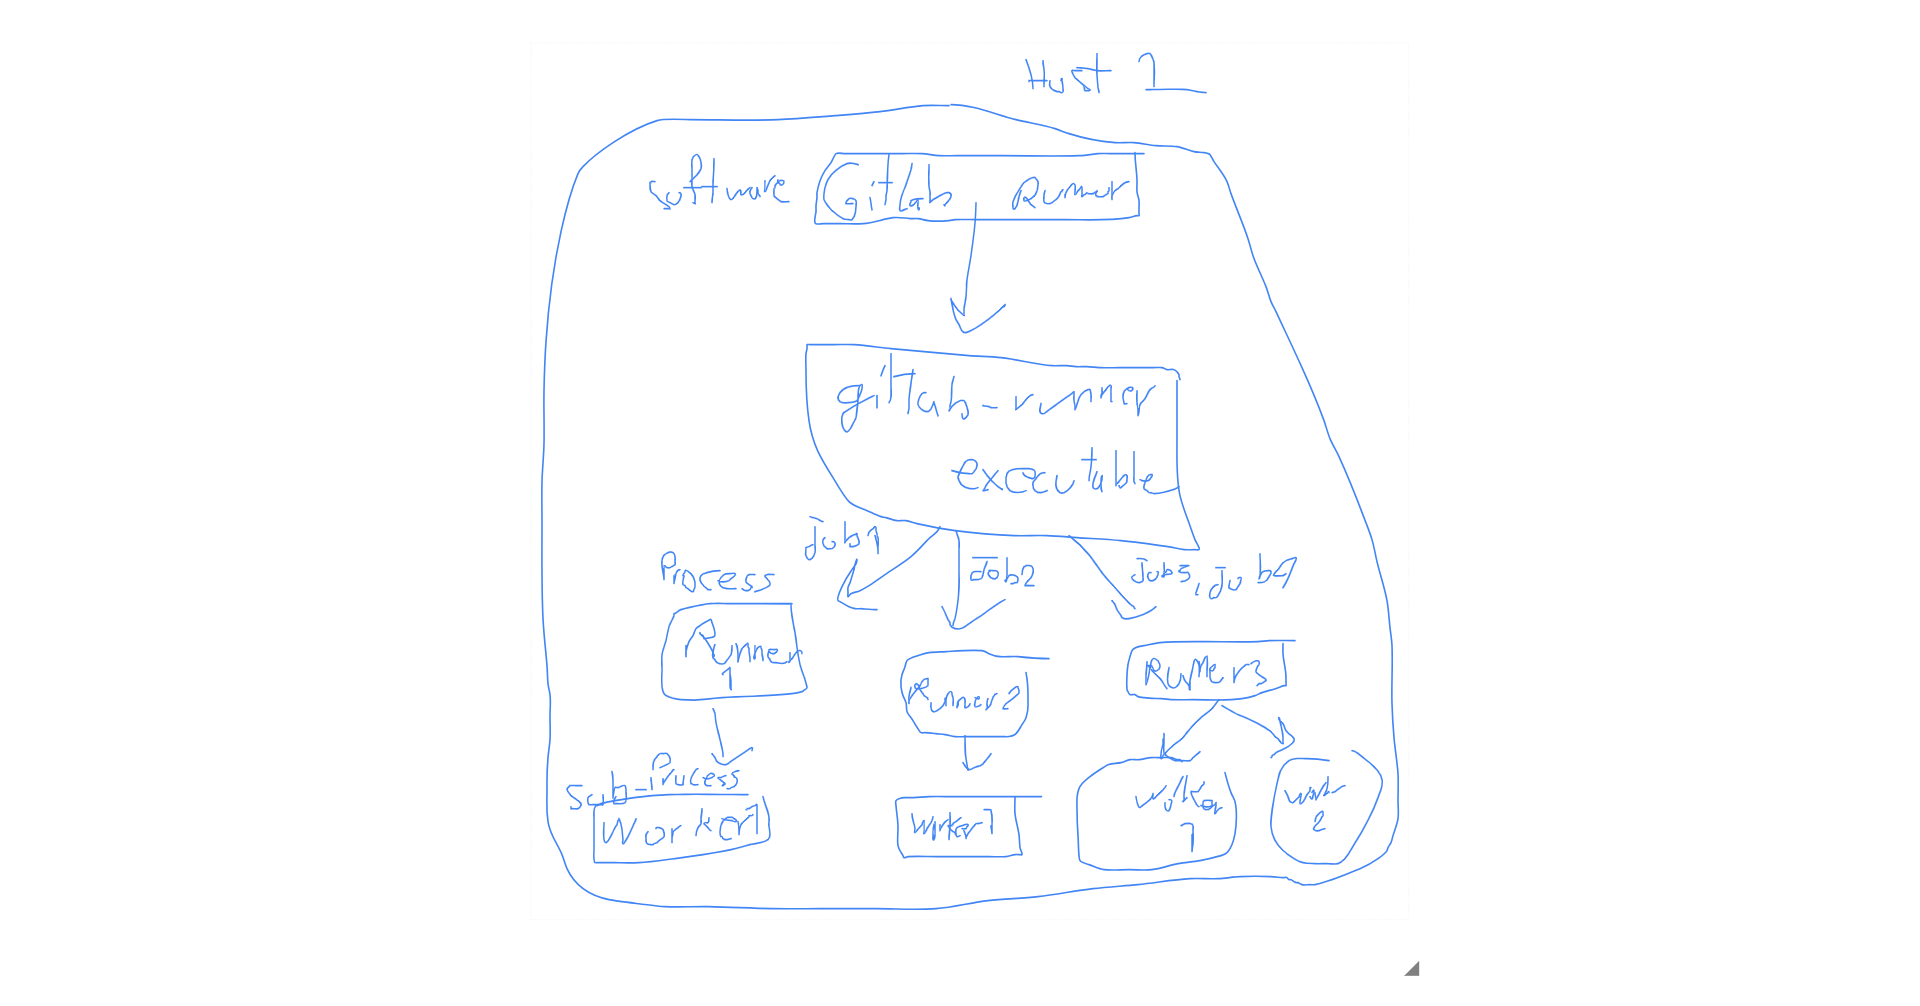 Host 1
software GitLab Runner
gitlab-runner
executable
Job1
Job2
Job3, Job4
Process
Runner
1
Runner2
Runner3
Sub-Process
Worker1
Worker1
Worker
1
Work
2